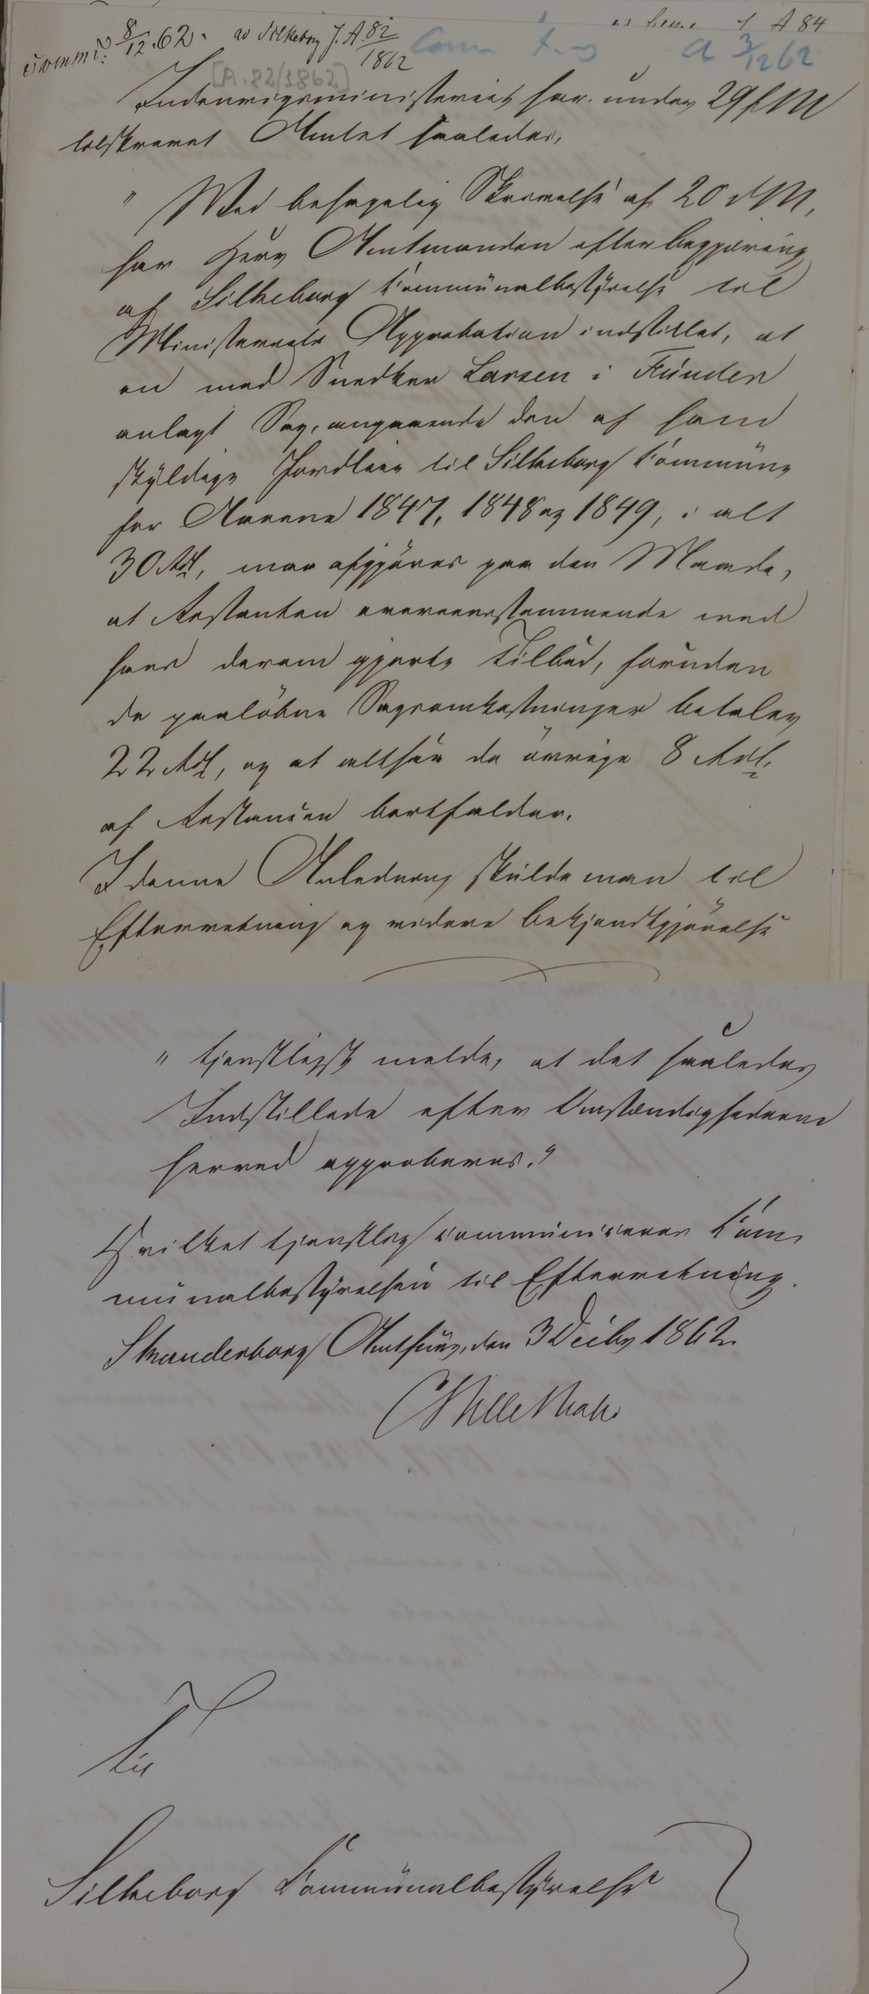 A 84
8/12 62. ad Silkeborg J. A 82/1862
a 3/12 62
[A. 82/1862]
Indenrigsministeriet har under 29 f M
tilskrevet Amtet saaledes,
" Med behagelig Skrivelse af 20 d M,
har Herr Amtmanden efter Begjæring
af Silkeborg Communalbestyrelse til
Ministeriets Approbation indstillet, at
en mod Snedker Larsen i Funder
anlagt Sag, angaaende den af ham
skyldige Jordleie til Silkeborg Commune
for Aarene 1847, 1848 og 1849, i alt
30 Rdl, maa afgjøres paa den Maade,
at Restanten overeensstemmende med
hans derom gjorte Tilbud, foruden
de paaløbne Sagsomkostninger betaler
22 Rdl, og at altsaa de øvrige 8 Rdl.
af Restancen bortfalder.
I denne Anledning skulde man til
Efterretning og videre Bekjendtgjørelse
" tjenstligst melde, at det saaledes
Indstillede efter Omstændighederne
herved approberes."
Hvilket tjenstlig communiceres Com-
munalbestyrelsen til Efterretning.
Skanderborg Amthuus, den 3 Decbr 1862
Til
Silkeborg Communalbestyrelse